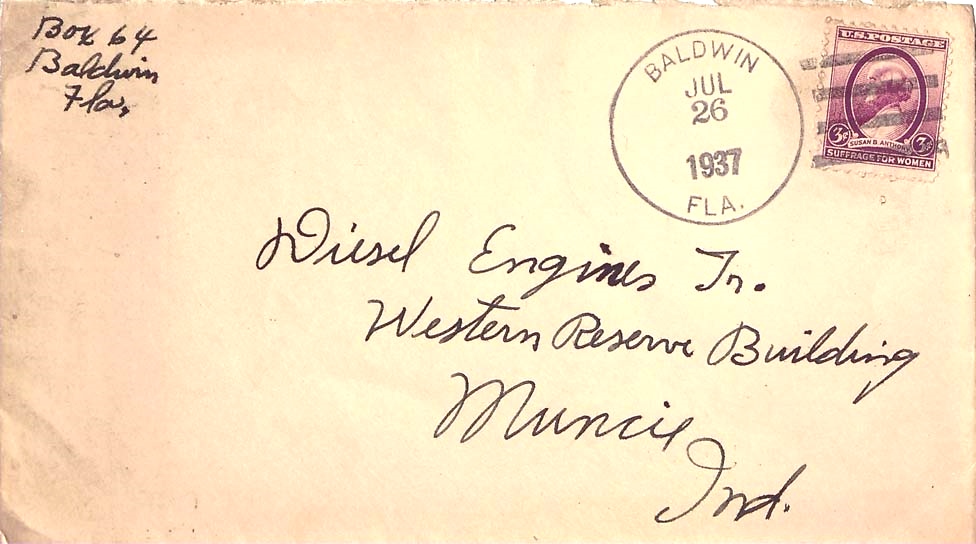 Box 64
Baldwin
Fla,
BALDWIN
JUL
26
1937
FLA.
U.S. POSTAGE
3¢ SUSAN B. ANTHONY 3¢
SUFFRAGE FOR WOMEN
Diesel Engines Tr.
Western Reserve Building
Muncie
Ind.